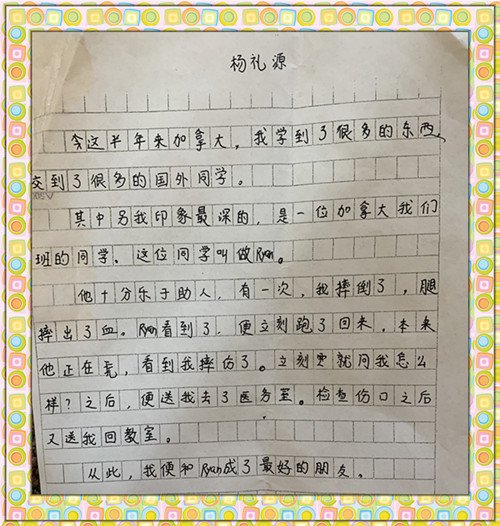 杨礼源
这半年来加拿大，我学到了很多的东西，
交到了很多的国外同学。
其中另我印象最深的，是一位加拿大我们
班的同学。这位同学叫做Ryan。
他十分乐于助人，有一次，我摔倒了，腿
摔出了血。Ryan看到了，便立刻跑了回来，本来
他正在，看到我摔伤了。立刻就问我怎么
样？之后，便送我去了医务室。检查伤口之后
又送我回教室。
从此，我便和Ryan成了最好的朋友。